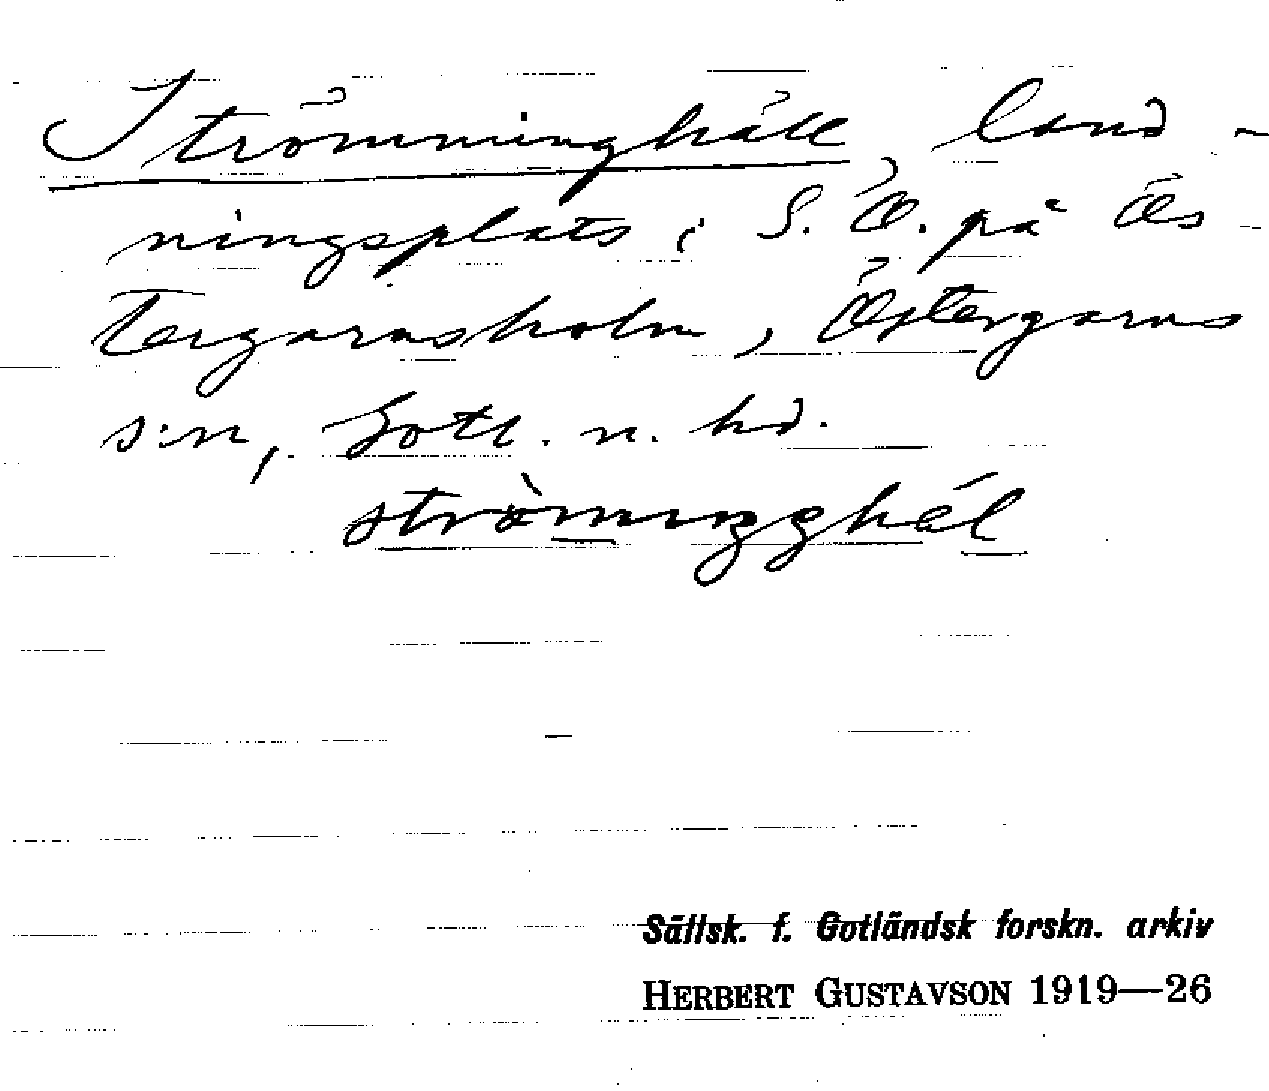 Strömminghäll, land-
ningsplats i S. Ö. på Ös-
tergarnsholm, Östergarns
s:n, Gotl. n. hd.
Sällsk. f. Gotländsk forskn. arkiv
HERBERT GUSTAVSON 1919—26